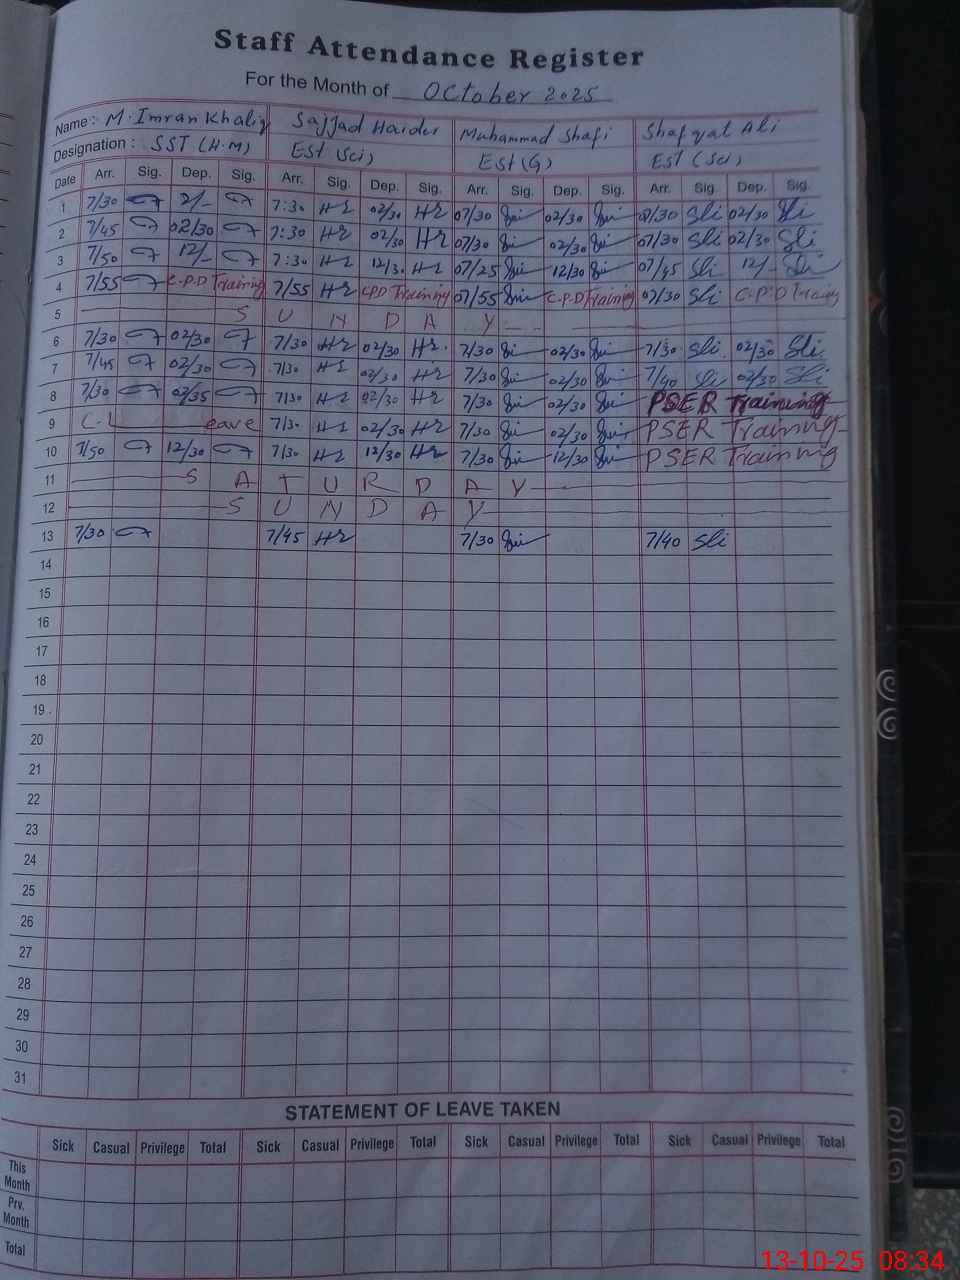 Staff Attendance Register
For the Month of October 2025
Name: M. Imran Khaliq Sajjad Haider Muhammad Shafi Shafqat Ali
Designation: SST (H.M) Est (Sci) Est (G) Est (Sci)
Date Arr. Sig. Dep. Sig. Arr. Sig. Dep. Sig. Arr. Sig. Dep. Sig. Arr. Sig. Dep. Sig.
1 7/30 2/- 7:30 Hr 02/30 Hr 07/30 02/30 07/30 Sli 02/30 Sli
2 7/45 02/30 7:30 Hr 02/30 Hr 07/30 02/30 07/30 Sli 02/30 Sli
3 7/50 12/- 7:30 Hr 12/30 Hr 07/25 12/30 07/45 Sli 12/- Sli
4 7/55 C.P.D Training 7/55 Hr CPD Training 07/55 C.P.D Training 07/30 Sli C.P.D Training
5 S U N D A Y
6 7/30 02/30 7/30 Hr 02/30 Hr. 7/30 02/30 7/30 Sli 02/30 Sli
7 7/45 02/30 7/30 Hr 02/30 Hr 7/30 02/30 7/40 Sli 02/30 Sli
8 7/30 02/35 7/30 Hr 02/30 Hr 7/30 02/30 PSER Training
9 C.L Leave 7/30 Hr 02/30 Hr 7/30 02/30 PSER Training
10 7/50 12/30 7/30 Hr 12/30 Hr 7/30 12/30 PSER Training
11 S A T U R D A Y
12 S U N D A Y
13 7/30 7/45 Hr 7/30 7/40 Sli
14
15
16
17
18
19
20
21
22
23
24
25
26
27
28
29
30
31
STATEMENT OF LEAVE TAKEN
Sick Casual Privilege Total Sick Casual Privilege Total Sick Casual Privilege Total Sick Casual Privilege Total
This Month
Prv. Month
Total
13-10-25 08:34